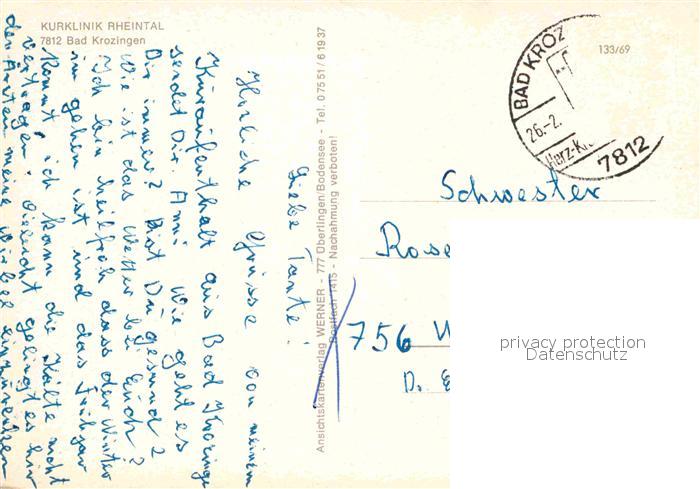 KURKLINIK RHEINTAL
7812 Bad Krozingen
Liebe Tante!
Herzliche Grüsse von meinem
Kuraufenthalt aus Bad Krozingen
sendet Dir Anni. Wie geht es
Dir immer? Bist Du gesund?
Wie ist das Wetter bei Euch?
Ich bin heilfroh dass der Winter
im gehen ist und das Frühjar
kommt, ich kann die Kälte nicht
vertragen. Vieleicht gelingt es hir
den Ärzten meine Wirbel einzurenken
Ansichtskartenverlag WERNER - 777 Überlingen/Bodensee - Tel. 07551/61937
Postfach 1415 - Nachahmung verboten!
133/69
BAD KROZ
26.-2.
Herz-K
7812
Schwester
Rose
756 W
D.
privacy protection
Datenschutz